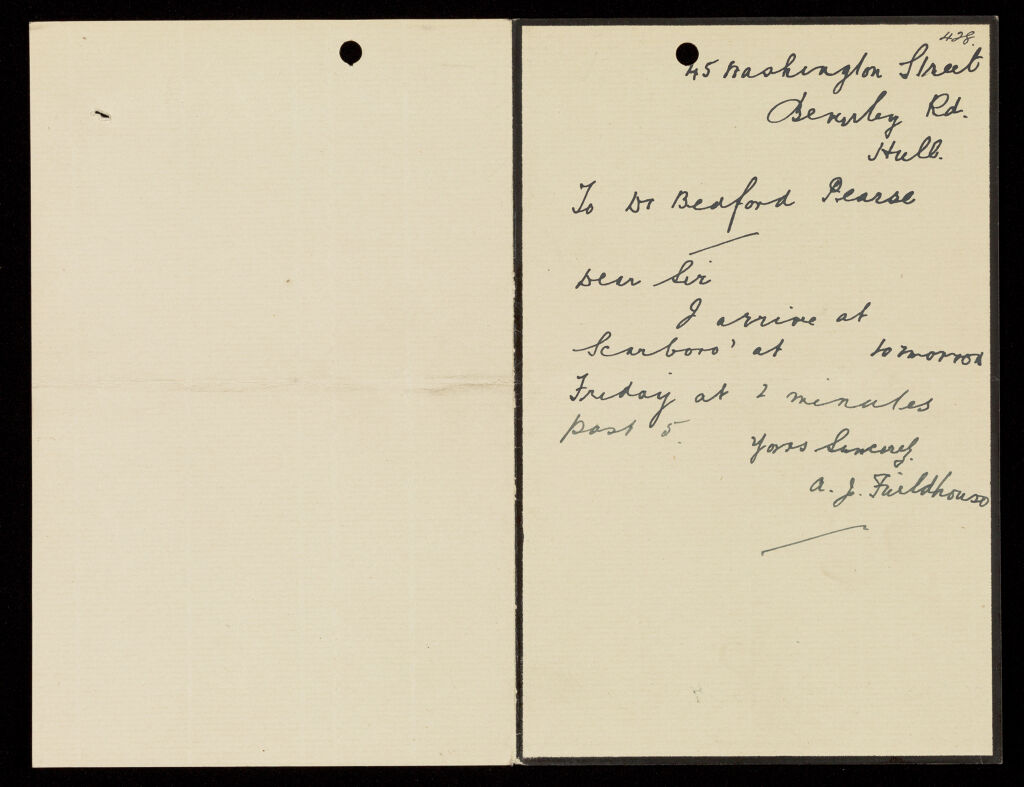 428.
45 Washington Street
Beverley Rd.
Hull.
To Dr Bedford Pearse
Dear Sir
I arrive at
Scarboro' at tomorrow
Friday at 2 minutes
past 5.
Yours Sincerely.
A. J. Fieldhouse